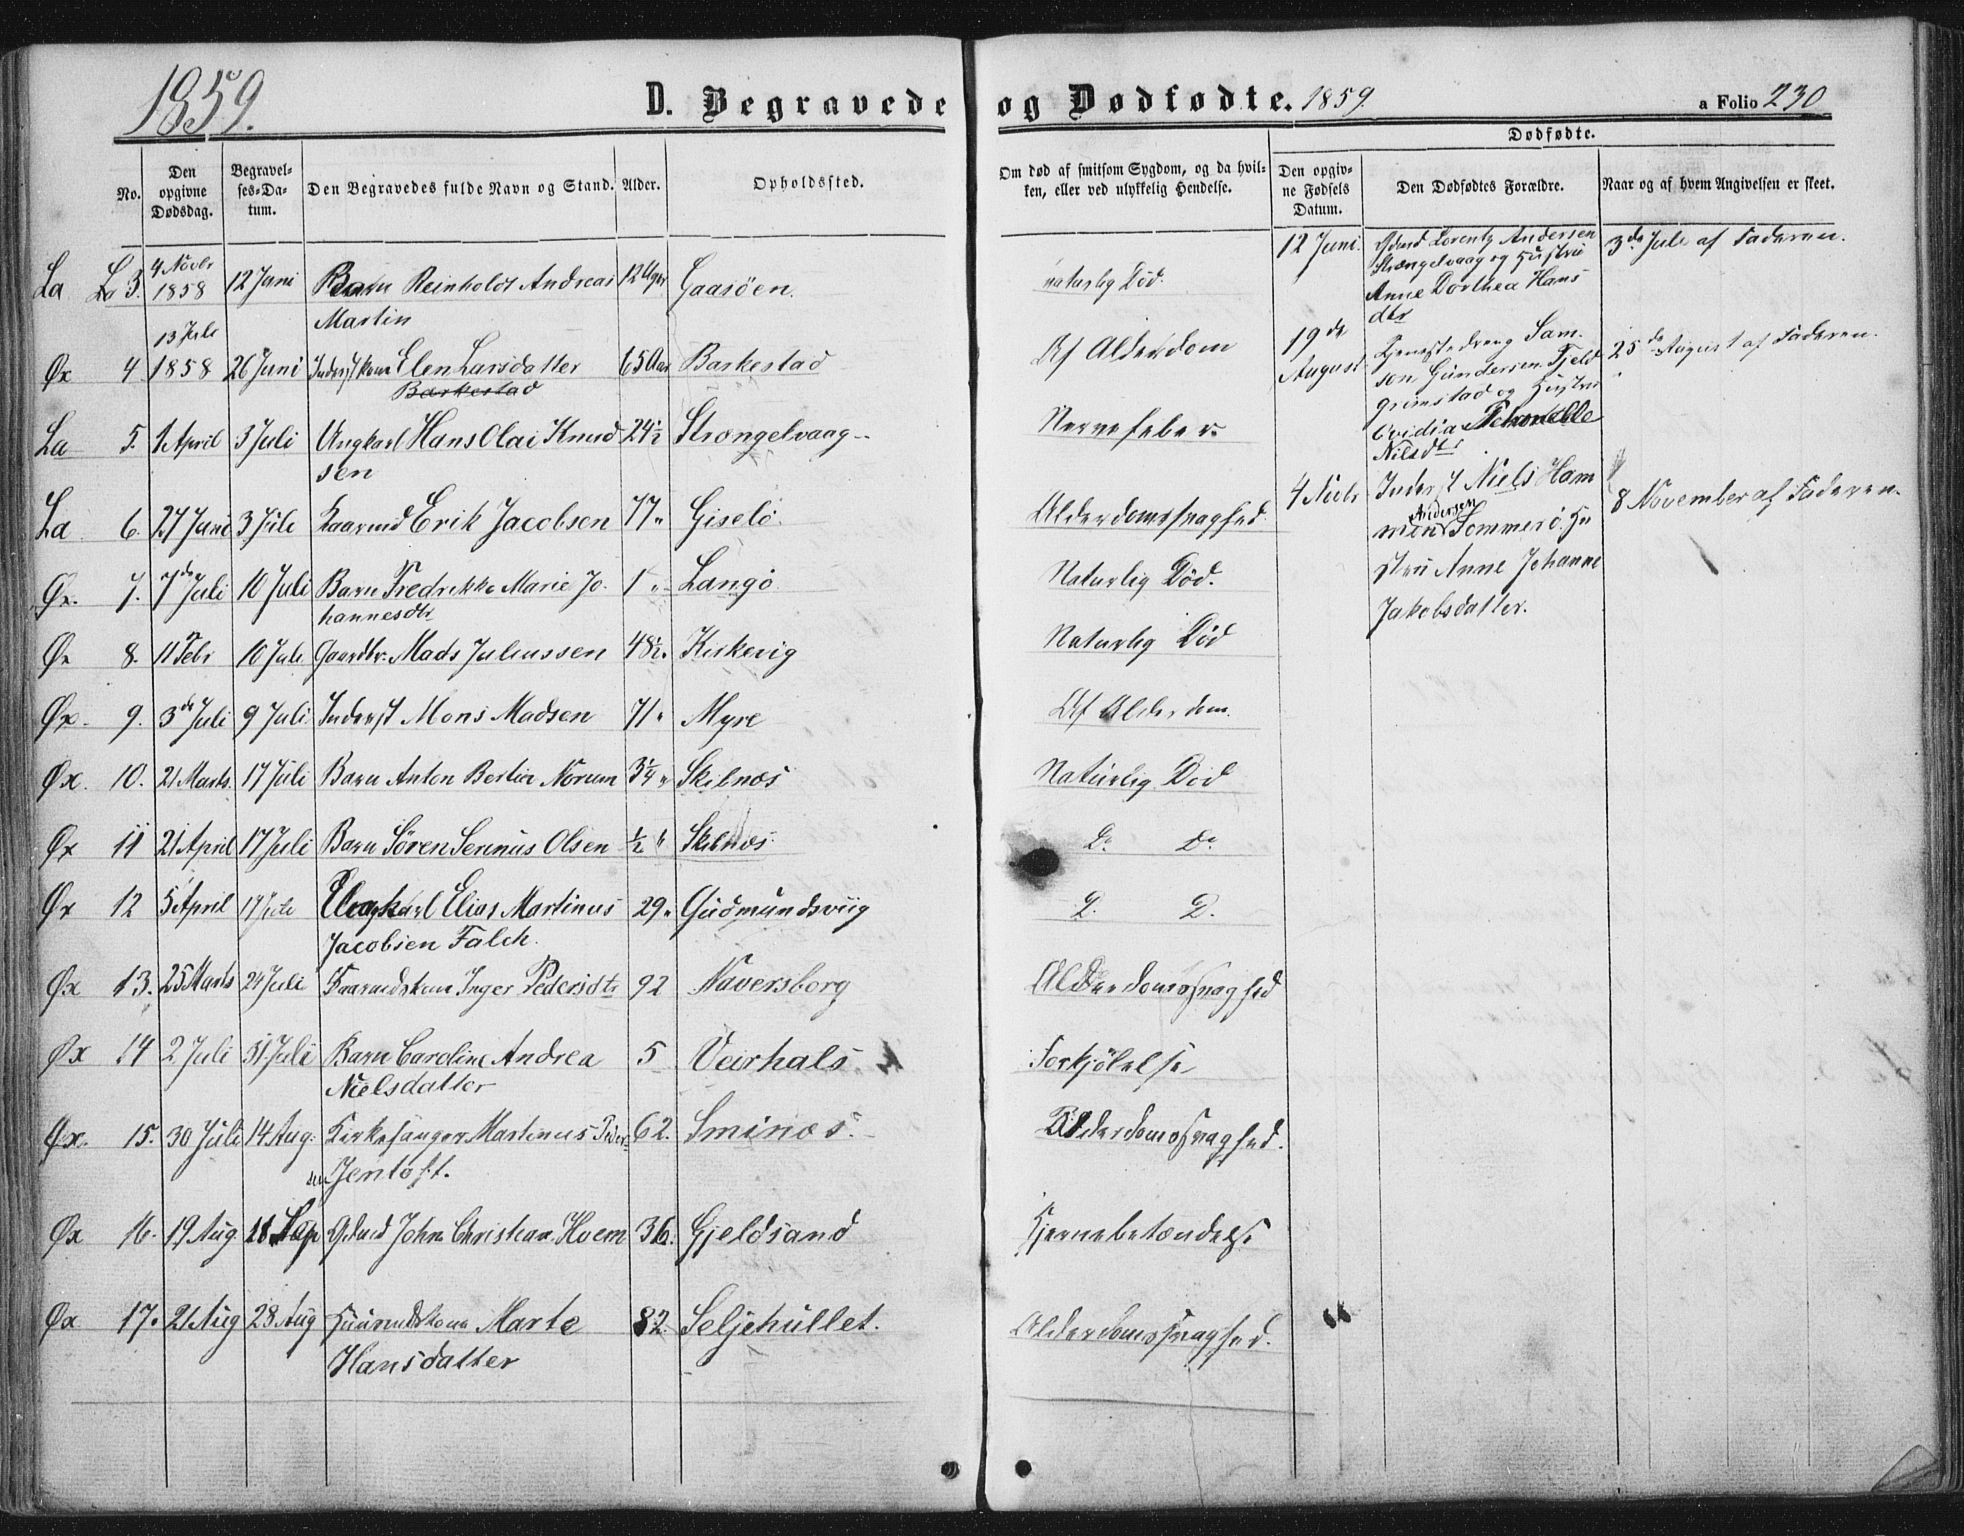 1859.
D. Begravede og Dødfødte. 1859
a Folio 230
No.
Den opgivne Dødsdag.
Begravelses-Datum.
Den Begravedes fulde Navn og Stand.
Alder.
Opholdssted.
Om død af smitsom Sygdom, og da hvilken, eller ved ulykkelig Hendelse.
Dødfødte.
Den opgivne Fødsels Datum.
Den Dødfødtes Forældre.
Naar og af hvem Angivelsen er skeet.
La 3. 4 Novbr 1858 12 Juni Barn Reinholdt Andreas 12 Uger Gaasöen. naturlig Död.
Martin
Øx 4. 13 Juli 1858 26 Juni Inderstkone Elen Larsdatter 65 Aar Barkestad Af Alderdom
Barkestad
La 5. 1 April 3 Juli Ungkarl Hans Olai Knud 24½ Strængelvaag Nervefeber
sen
La 6. 27 Juni 3 Juli Kaarmd Erik Jacobsen 77 " Giselö. Alderdomssvaghed.
Øx. 7. 7de Juli 10 Juli Barn Fredrikke Marie Jo- 1 " Langö Naturlig Död.
hannesdtr
Øx 8. 11 Febr 10 Juli Gaardbr. Mads Juliussen 48½ " Kirkevig Naturlig Död
Øx. 9. 3de Juli 9 Juli Inderst Mons Madsen 71 " Myre Af Alderdom.
Øx. 10. 21 Marts. 17 Juli Barn Anton Bertin Norum 3¼ " Skibnæs Naturlig Död
Øx 11 21 April 17 Juli Barn Sören Serinus Olsen ½ " Skibnæs. Do Do
Øx 12 5 April 17 Juli Ungkarl Elias Martinus 29 " Gudmundsviig D. D.
Jacobsen Falch.
Øx 13. 25 Marts 24 Juli Kaarmdskone Inger Pedersdtr 92 Naversborg Alderdomssvaghed
Øx 14 2 Juli 31 Juli Barn Caroline Andrea 5 Veirhals Forkjölelse
Nielsdatter
Øx. 15. 30 Juli 14 Aug. Kirkesanger Martinus Peder- 62. Sminæs. Alderdomssvaghed.
sen Jentoft.
Øx 16. 19 Aug. 18 Sep Gdmd John Christian Hoem 36. Gjeldsand Hjernebetændelse
Øx 17. 21 Aug 28 Aug Huusmdskone Marte 82. Seljehullet. Alderdomssvaghed.
Hansdatter
12 Juni. Gdmd Lorentz Andersen 3de Juli af Faderen.
Strængelvaag og Hustru
Anne Dorthea Hans
dtr
19de August Tjenestedreng Sam- 25de August af Faderen.
son Gundersen Fjeld
grimstad og Hustru
Ovidia
Nilsdtr
4 Novbr Inderst Niels Ham 8 November af Faderen.
Andersen
men Sommerö. Hu
stru Anne Johanne
Jakobsdatter.